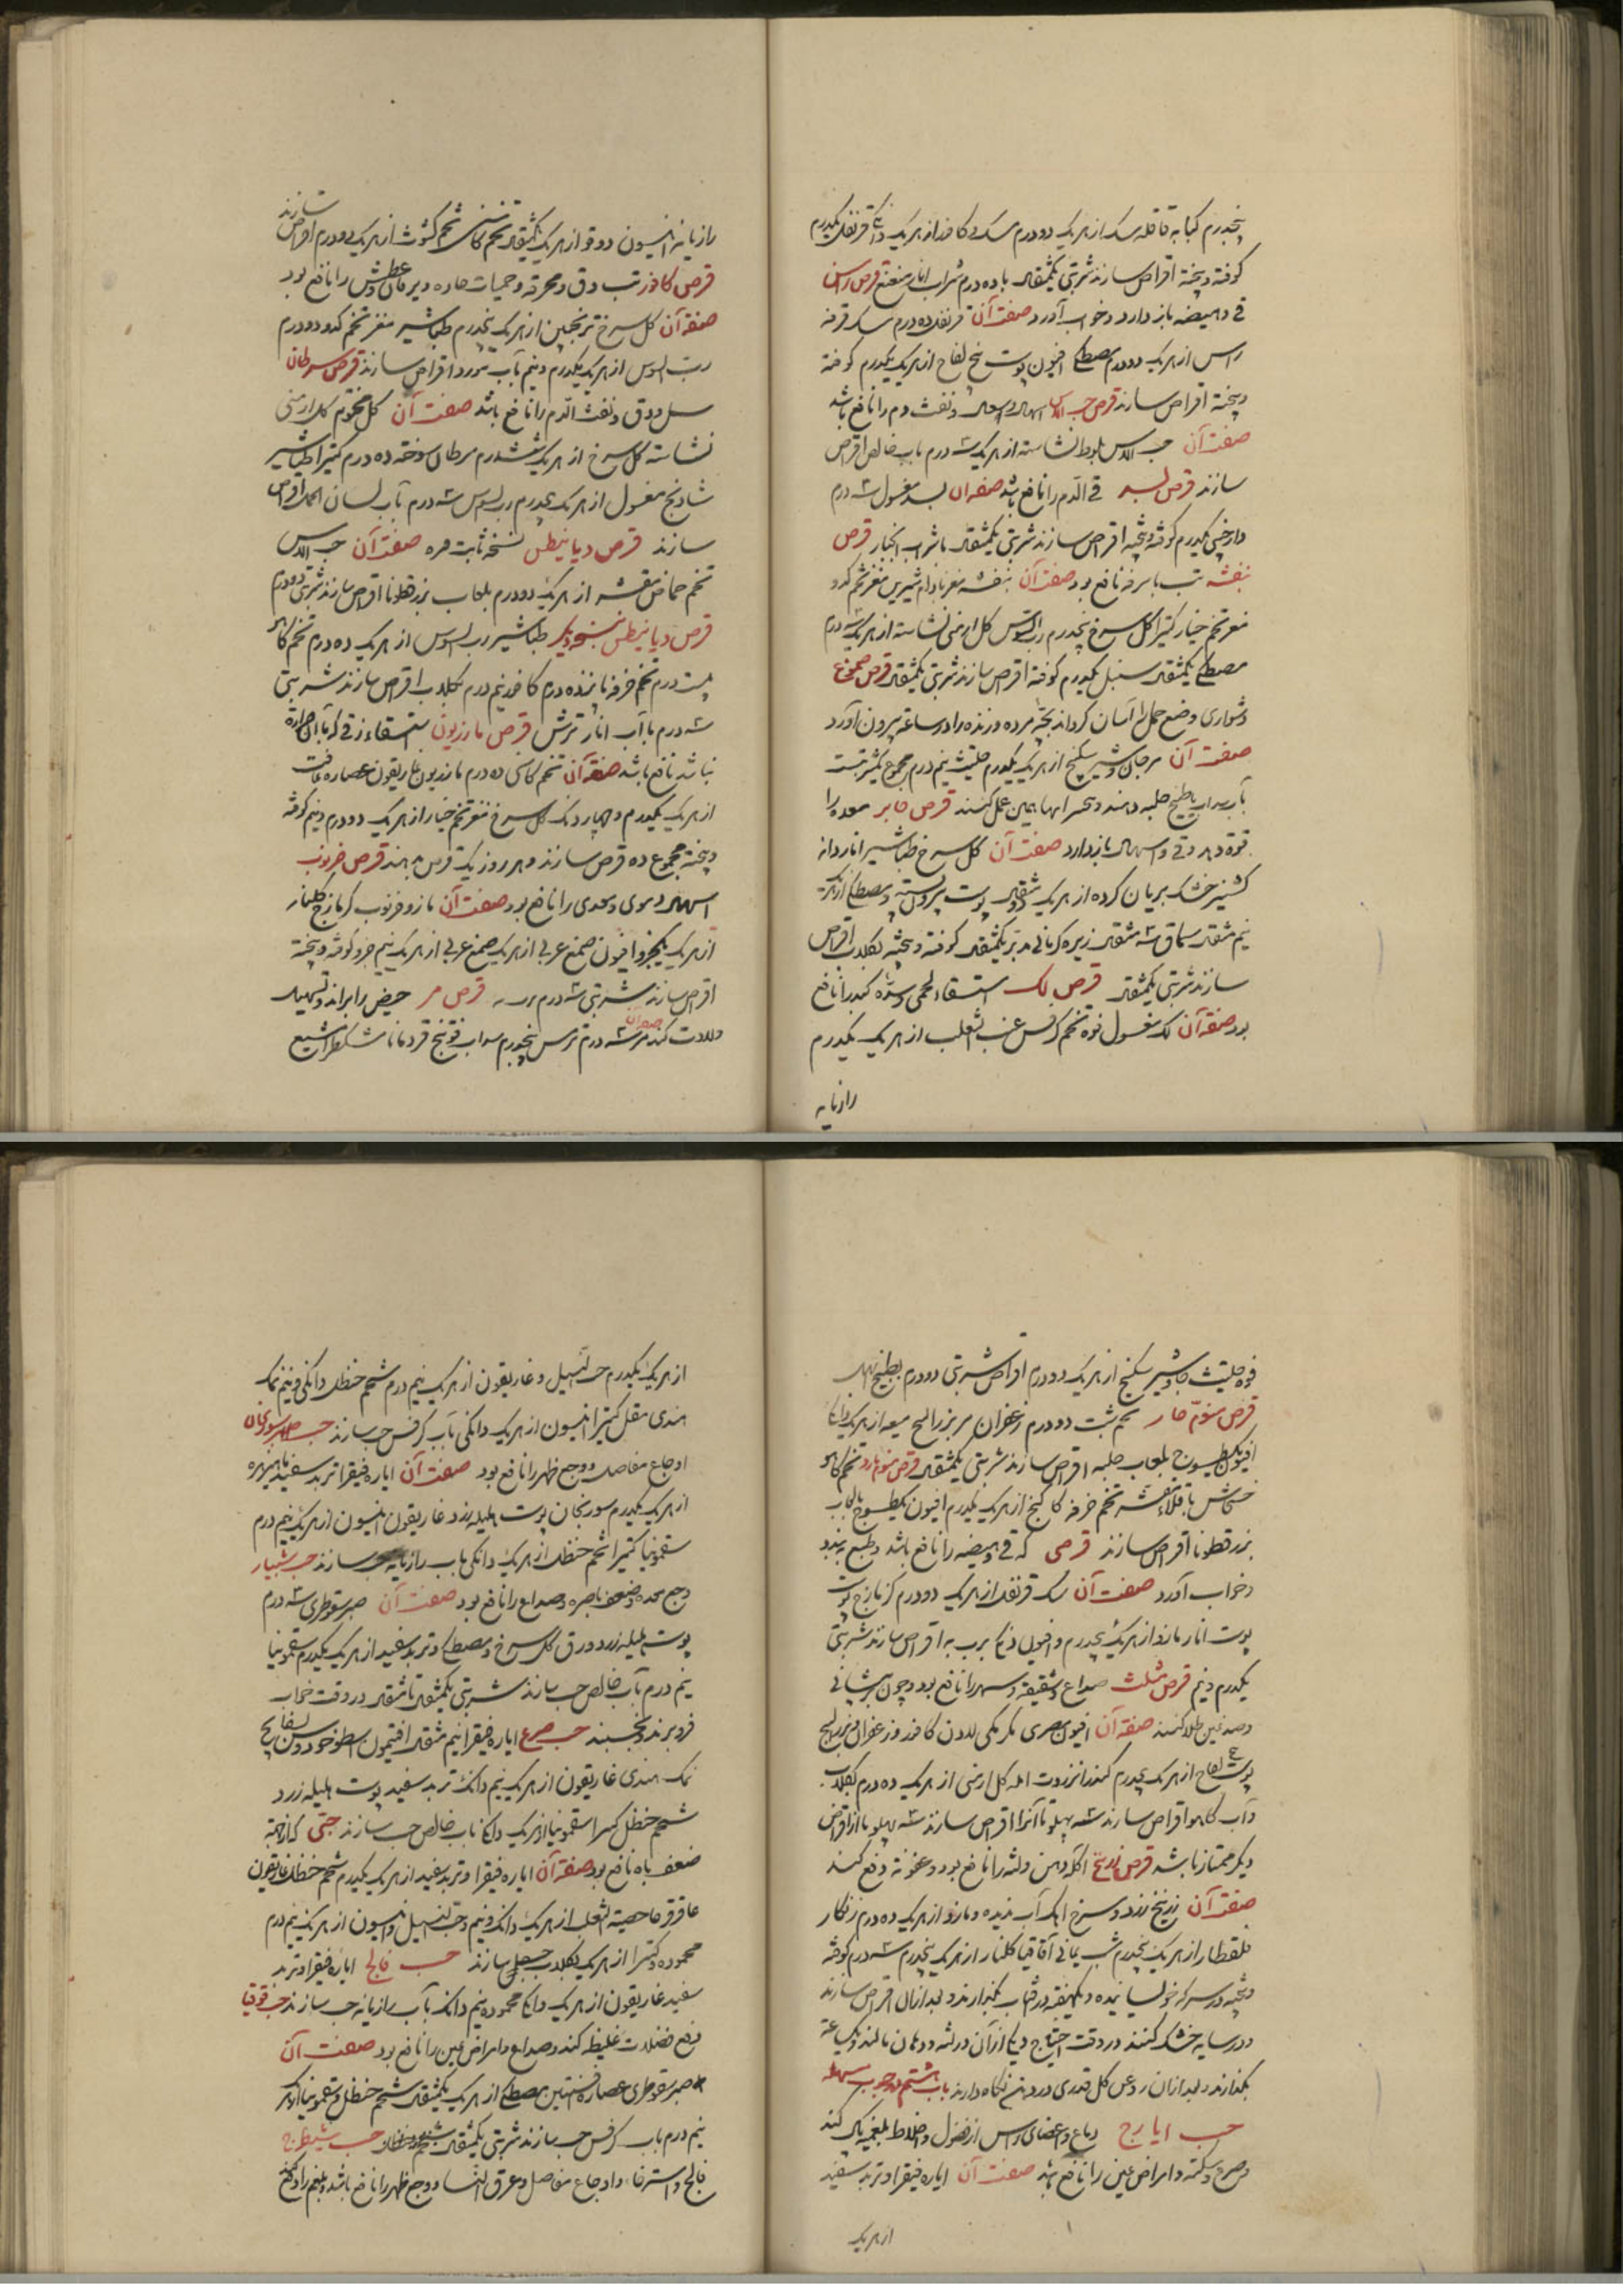 پنجدرم کبابه قاقله سک از هریک دو درم مشک کافور از هریک دانگی قرنفل یکدرم
کوفته و بیخته اقراص سازند شربتی یکمثقال با ده درم شراب انار منعنع قرص راسن
قی و هیضه باز دارد و خواب آورد صفت آن قرنفل ده درم سک قرفه
راسن از هریک دو درم مصطکی افیون پوست بیخ لفاح از هریک یکدرم کوفته
و بیخته اقراص سازند قرص حب الاس اسهال و نفث دم را نافع باشد
صفت آن حب الاس بلوط نشاسته از هریک سه درم بآب خالص اقراص
سازند قرص بسد قی الدم را نافع باشد صفت آن بسد مغسول سه درم
دارچینی یکدرم کوفته و بیخته اقراص سازند شربتی یکمثقال با شراب انجبار قرص
بنفشه تب با سرفه نافع بود صفت آن بنفشه مغز بادام شیرین مغز تخم کدو
مغز تخم خیار کتیرا گل سرخ پنجدرم رب السوس گل ارمنی نشاسته از هریک سه درم
مصطکی یکمثقال سنبل یکدرم کوفته اقراص سازند شربتی یکمثقال قرص
دشواری وضع حمل را آسان کرداند بچه مرده و زنده را در ساعت بیرون آورد
صفت آن مرجان جاوشیر سکبینج از هریک یکدرم حلتیت نیم درم مجموع یکشربتست
بآب سداب یا طبیخ حلبه دهند قرص جابر معده را
قوه دهد و قی و اسهال باز دارد صفت آن گل سرخ طباشیر اناردانه
کشنیز خشک بریان کرده از هریک دو مثقال پوست بیرون پسته و مصطکی از هریک
نیم مثقال سماق سه مثقال زیره کرمانی مدبر یکمثقال کوفته و بیخته بگلاب اقراص
سازند شربتی یکمثقال قرص لک استسقاء لحمی و سده کبد را نافع
بود صفت آن لک مغسول فوه تخم کرفس عنب الثعلب از هریک یکدرم
رازیانه
رازیانه انیسون دوقو از هریک یکمثقال تخم کاسنی تخم کشوث از هریک دو درم اقراص سازند
قرص کافور تب دق و محرقه و حمیات حاده و یرقان و عطش را نافع بود
صفت آن گل سرخ ترنجبین از هریک پنجدرم طباشیر مغز تخم کدو دو درم
رب السوس از هریک یکدرم و نیم بآب مورد اقراص سازند قرص سرطان
سل و دق و نفث الدم را نافع باشد صفت آن گل مختوم گل ارمنی
نشاسته گل سرخ از هریک ششدرم سرطان سوخته ده درم کتیرا طباشیر
شادنج مغسول از هریک پنجدرم رب السوس سه درم بآب لسان الحمل اقراص
سازند قرص دیابیطس نسخه ثابت قره صفت آن حب الاس
تخم حماض مقشر از هریک دو درم بلعاب بزرقطونا اقراص سازند شربتی دو درم
قرص دیابیطس بنسخه دیگر طباشیر رب السوس از هریک ده درم تخم کاهو
بیست درم تخم خرفه پانزده درم کافور نیم درم بگلاب اقراص سازند شربتی
سه درم با آب انار ترش قرص مازریون استسقاء زقی که با آن حرارة
نباشد نافع باشد صفت آن تخم کاسنی ده درم مازریون غاریقون عصاره غافت
از هریک یکدرم و چهار دانگ گل سرخ مغز تخم خیار از هریک دو درم و نیم کوفته
و بیخته مجموع ده قرص سازند و هر روز یک قرص بدهند قرص خرنوب
اسهال دموی و معدی را نافع بود صفت آن مازو خرنوب کزمازج گلنار
از هریک یکجزو افیون صمغ عربی از هریک صمغ عربی از هریک نیم جزو کوفته و بیخته
اقراص سازند شربتی سه درم برب به قرص مر حیض را براند و تسهیل
ولادت کند صفت آن مر سه درم ترمس پنجدرم سداب فوتنج قردمانا مشکطرامشیع
فوه حلتیت جاوشیر سکبینج از هریک دو درم اقراص شربتی دو درم بطبیخ ابهل
قرص منوم حار تخم شبت دو درم زعفران مر بزرالبنج میعه از هریک دانگی
افیون بلعاب حلبه اقراص سازند شربتی یکمثقال قرص منوم بارد تخم کاهو
خشخاش باقلاء مقشر تخم خرفه کاکنج از هریک یکدرم افیون بلعاب
بزرقطونا اقراص سازند قرصی که قی و هیضه را نافع باشد و طبع ببندد
و خواب آورد صفت آن سک قرنفل از هریک دو درم کزمازج پوست
پوست انار مازو از هریک پنجدرم و افیون دانگی برب به اقراص سازند شربتی
یکدرم و نیم قرص مثلث صداع و شقیقه و سهر را نافع بود و چون بر پیشانی
و صدغین طلا کنند صفت آن افیون مصری مر مکی لادن کافور و زعفران بزرالبنج
پوست بیخ لفاح از هریک پنجدرم کندر انزروت امله گل ارمنی از هریک ده درم بگلاب
و آب کاهو اقراص سازند سه پهلو تا آنرا اقراص سازند سه پهلو تا از اقراص
دیگر ممتاز باشد قرص زرنیخ آکله دهن و لثه را نافع بود و عفونة دفع کند
صفت آن زرنیخ زرد و سرخ آهک آب ندیده و مازو از هریک ده درم زنگار
قلقطار از هریک پنجدرم شب یمانی آقاقیا گلنار از هریک پنجدرم سه درم کوفته
و بیخته در سرکه خوسانیده و یکهفته در آفتاب بگذارند و بعد از آن اقراص سازند
و در سایه خشک کنند در وقت احتیاج دانگی از آن در لثه و دهان بمالند و یکساعة
بگذارند و بعد از آن روغن گل قدری در دهن نگاه دارند باب هشتم در حبوب مسهله
حب ایارج دماغ و اعضای راس از فضول و اخلاط بلغمی پاک کند
و صرع و سکته و امراض عین را نافع باشد صفت آن ایاره فیقرا و تربد سفید
از هریک
از هریک یکدرم حب النیل و غاریقون از هریک نیم درم شحم حنظل دانگی و نیم نمک
هندی مقل کتیرا انیسون از هریک دانگی بآب کرفس حب سازند حب سورنجان
اوجاع مفاصل و وجع ظهر را نافع بود صفت آن ایاره فیقرا تربد سفید ماهیزهره
از هریک یکدرم سورنجان پوست هلیله زرد غاریقون انیسون از هریک نیم درم
سقمونیا کتیرا شحم حنظل از هریک دانگی بآب رازیانه حب سازند حب شبیار
وجع معده و ضعف باصره و صداع را نافع بود صفت آن صبر سقوطری سه درم
پوست هلیله زرد ورق گل سرخ و مصطکی و تربد سفید از هریک یکدرم سقمونیا
نیم درم بآب خالص حب سازند شربتی یکمثقال تا مثقال در وقت خواب
فرو برند و بخسبند حب صرع ایاره فیقرا نیم مثقال افتیمون اسطوخودوس بسفایج
نمک هندی غاریقون از هریک نیم دانگ تربد سفید پوست هلیله زرد
شحم حنظل کتیرا سقمونیا از هریک دانگی بآب خالص حب سازند حبی که از جهة
ضعف باه نافع بود صفت آن ایاره فیقرا و تربد سفید از هریک یکدرم شحم حنظل غاریقون
عاقرقرحا خصیة الثعلب از هریک دانگ و نیم حب النیل و انیسون از هریک نیم درم
محموده و کتیرا از هریک بگلاب حب سازند حب فالج ایاره فیقرا و تربد
سفید غاریقون از هریک دانگی محموده نیم دانگ بآب رازیانه حب سازند حب قوقیا
دفع فضلات غلیظه کند و صداع و امراض عین را نافع بود صفت آن
صبر سقوطری عصاره افسنتین مصطکی از هریک یکمثقال شحم حنظل و سقمونیا از هریک
نیم درم بآب کرفس حب سازند شربتی یکمثقال حب شیطرج
فالج و استرخا و اوجاع مفاصل و عرق النسا و وجع ظهر را نافع باشد و بلغم را دفع